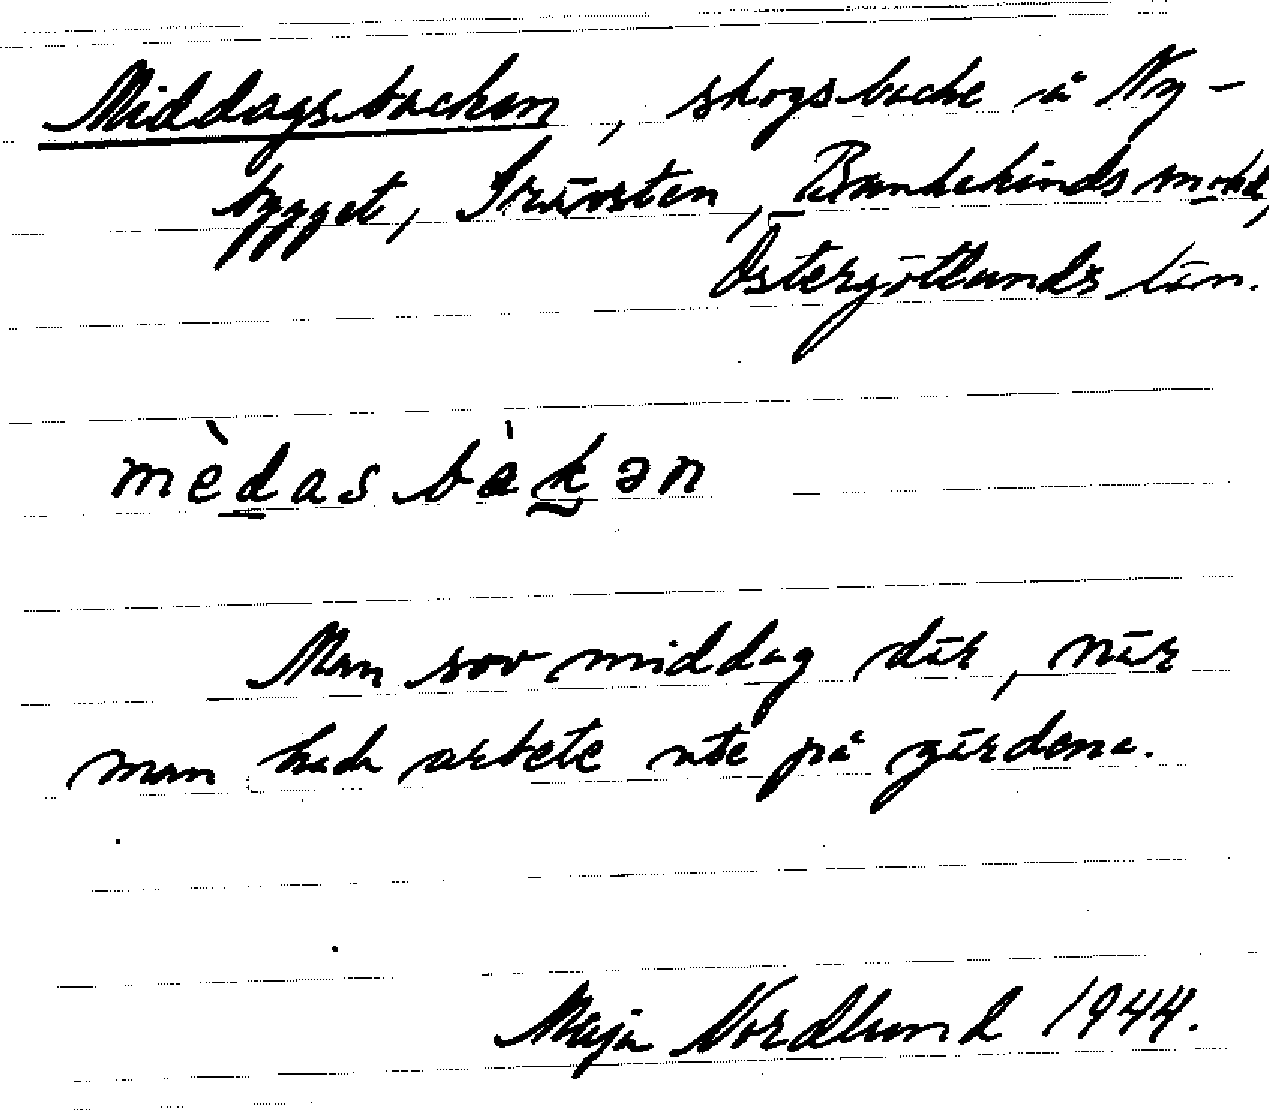 Middagsbacken, skogsbacke å Ny-
bygget, Trävsten, Bankekinds
Östergötlands län.
mèdasbàkən
Man sov middag där, när
man hade arbete ute på gärdena.
Maja Nordlund 1944.